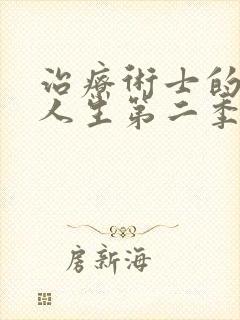 治療術士的
人生第二季
房新海